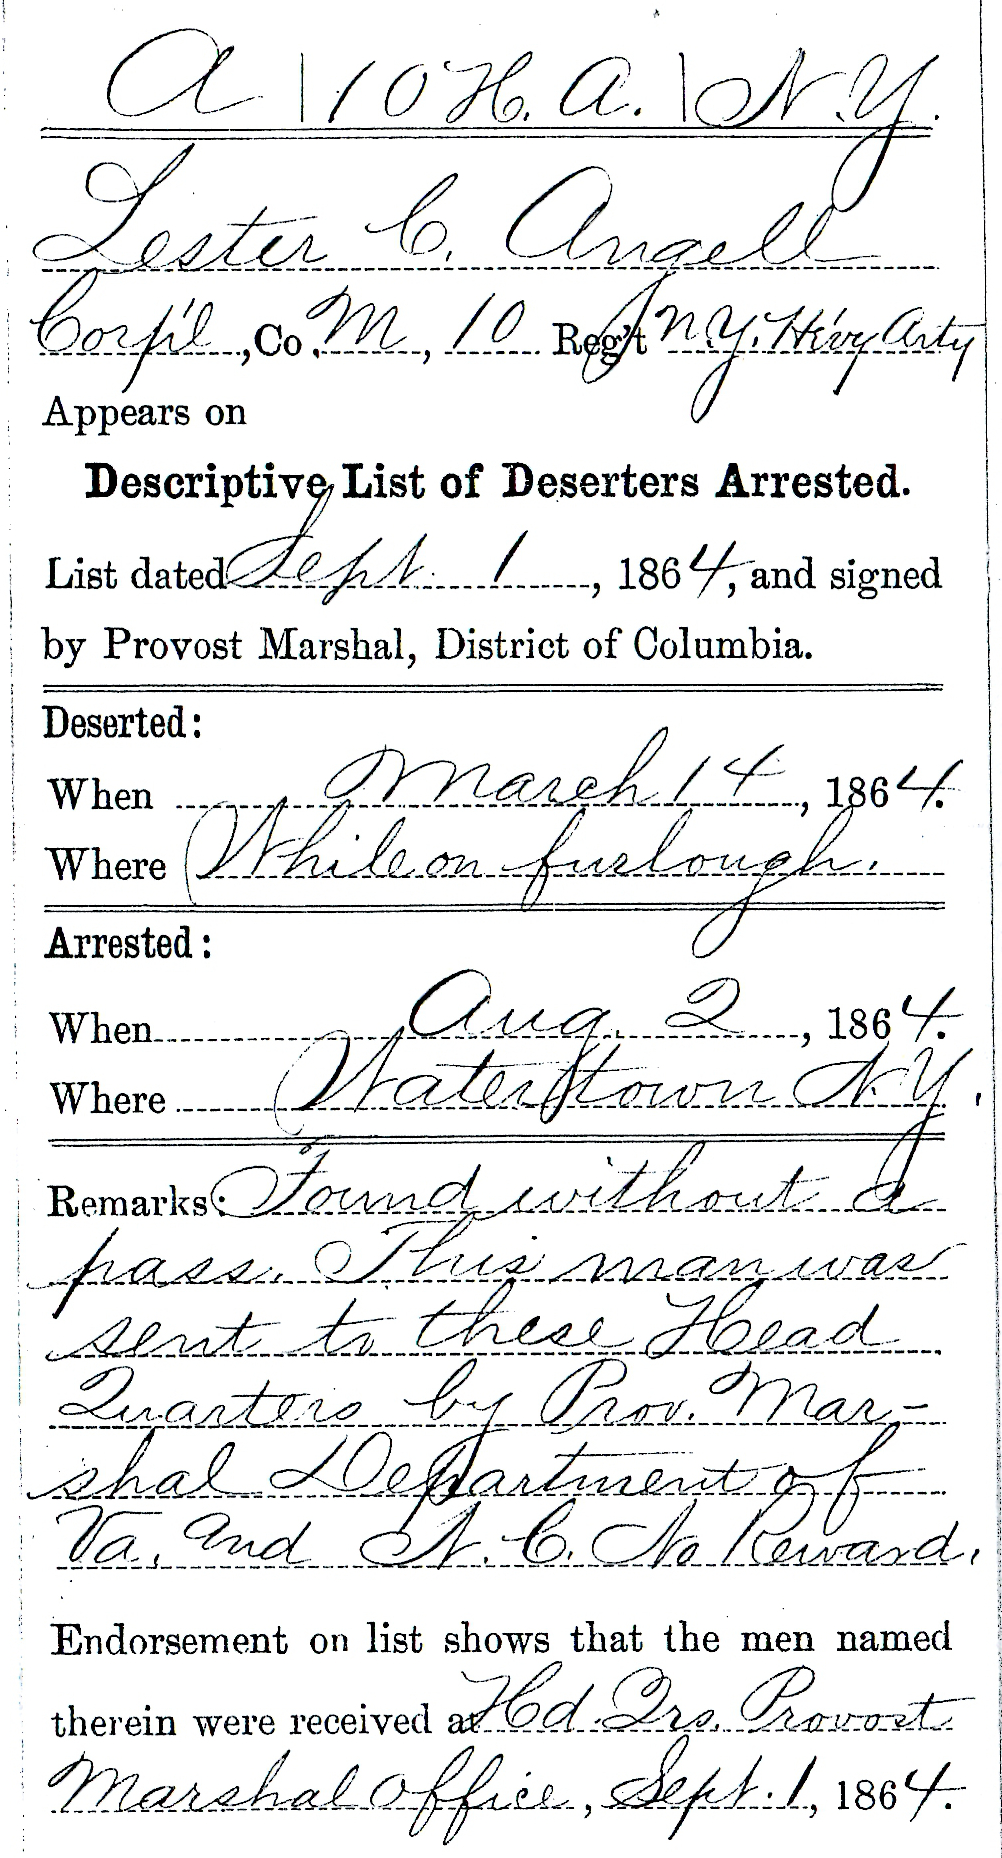 A | 10 H. A. | N.Y.
Lester C. Angell
Corp'l, Co. M, 10 Reg't N.Y. H'vy Arty
Appears on
Descriptive List of Deserters Arrested.
List dated Sept. 1, 1864, and signed
by Provost Marshal, District of Columbia.
Deserted:
When March 14, 1864.
Where While on furlough.
Arrested:
When Aug. 2, 1864.
Where Watertown N.Y.
Remarks: Found without a
pass. This man was
sent to these Head
Quarters by Prov. Mar-
shal Department of
Va. and N. C. No Reward.
Endorsement on list shows that the men named
therein were received at Hd. Qrs. Provost
Marshal Office, Sept. 1, 1864.